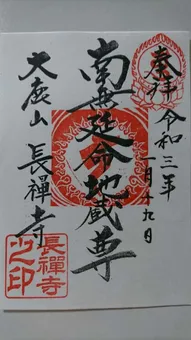 奉拝
令和三年
一月十九日
南無延命地蔵尊
大鹿山 長禪寺
長禪寺
之印